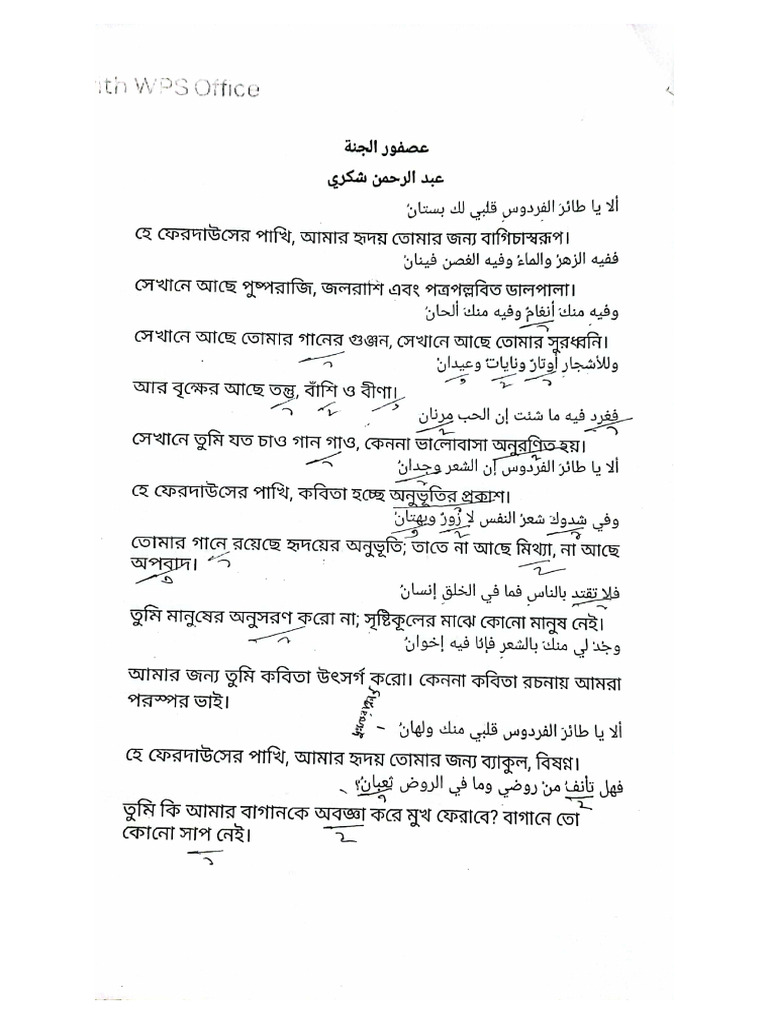 ith WPS Office
عصفور الجنة
عبد الرحمن شكري
ألا يا طائرَ الفردوسِ قلبي لك بستانُ
হে ফেরদাউসের পাখি, আমার হৃদয় তোমার জন্য বাগিচাস্বরূপ।
ففيه الزهرُ والماءُ وفيه الغصن فينانُ
সেখানে আছে পুষ্পরাজি, জলরাশি এবং পত্রপল্লবিত ডালপালা।
وفيه منكَ أنغامٌ وفيه منكَ ألحانُ
সেখানে আছে তোমার গানের গুঞ্জন, সেখানে আছে তোমার সুরধ্বনি।
وللأشجارِ أوتارٌ ونايات وعيدانُ
আর বৃক্ষের আছে তন্তু, বাঁশি ও বীণা।
فغرد فيه ما شئت إن الحب مرنان
সেখানে তুমি যত চাও গান গাও, কেননা ভালোবাসা অনুরণিত হয়।
ألا يا طائرَ الفردوسِ إن الشعر وجدانُ
হে ফেরদাউসের পাখি, কবিতা হচ্ছে অনুভূতির প্রকাশ।
وفي شدوكَ شعرُ النفس لا زورٌ وبهتانُ
তোমার গানে রয়েছে হৃদয়ের অনুভূতি; তাতে না আছে মিথ্যা, না আছে
অপবাদ।
فلا تقتد بالناسِ فما في الخلقِ إنسانُ
তুমি মানুষের অনুসরণ করো না; সৃষ্টিকূলের মাঝে কোনো মানুষ নেই।
وجُد لي منكَ بالشعرِ فإنَّا فيه إخوانُ
আমার জন্য তুমি কবিতা উৎসর্গ করো। কেননা কবিতা রচনায় আমরা
পরস্পর ভাই।
ألا يا طائرَ الفردوسِ قلبي منك ولهانُ
হে ফেরদাউসের পাখি, আমার হৃদয় তোমার জন্য ব্যাকুল, বিষণ্ন।
فهل تأنفُ من روضي وما في الروض ثعبانُ؟
তুমি কি আমার বাগানকে অবজ্ঞা করে মুখ ফেরাবে? বাগানে তো
কোনো সাপ নেই।